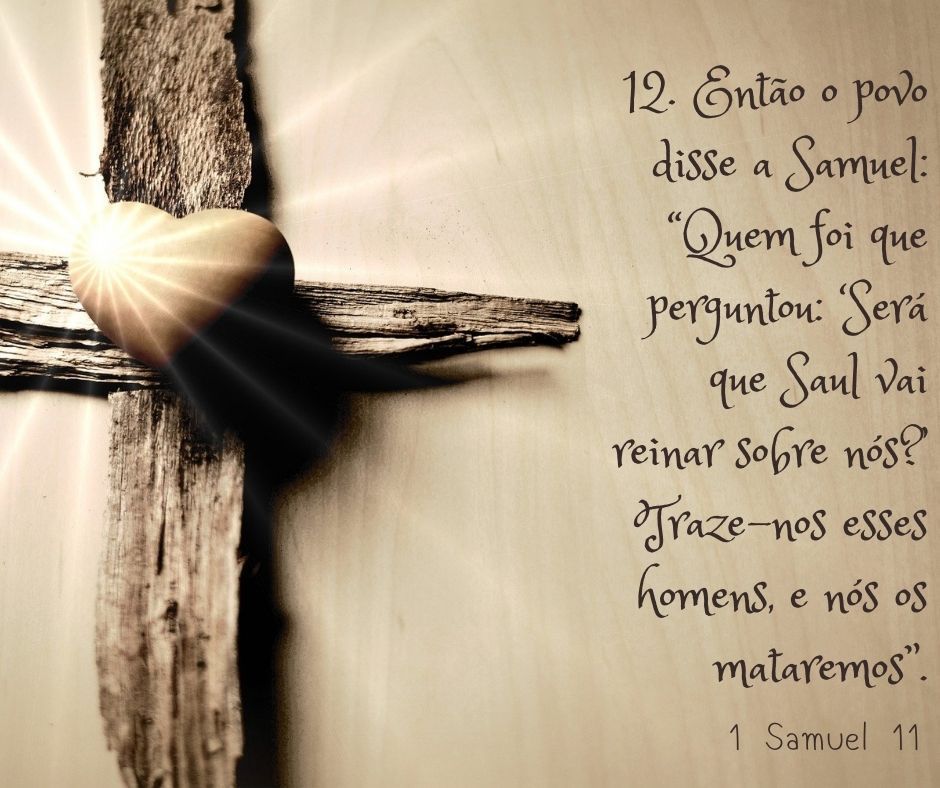 12. Então o povo
disse a Samuel:
“Quem foi que
perguntou: ‘Será
que Saul vai
reinar sobre nós?’
Traze-nos esses
homens, e nós os
mataremos”.
1 Samuel 11